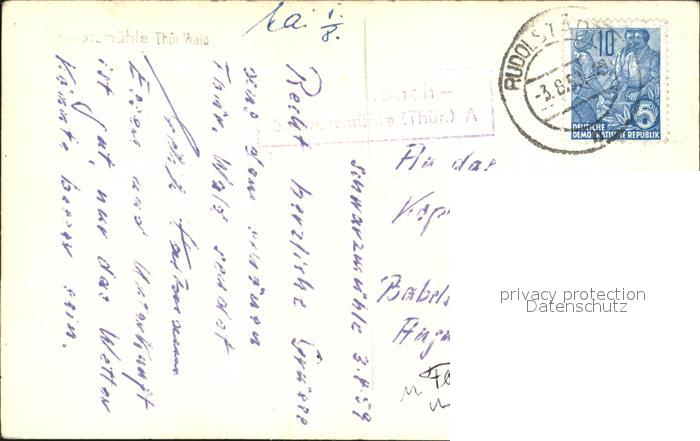 Schwarzmühle Thür Wald
Mai 1/8.
Schwarzmühle 3.8.59
Recht herzliche Grüsse
aus dem schönen
Thür. Wald sendet
Essen und Unterkunft
ist gut, nur das Wetter
könnte besser sein.
bach -
Schwarzmühle (Thür.) A
RUDOLSTADT
-3.8.5
10
5
DEUTSCHE
DEMOKRATISCHE REPUBLIK
An das
Babels
privacy protection
Datenschutz